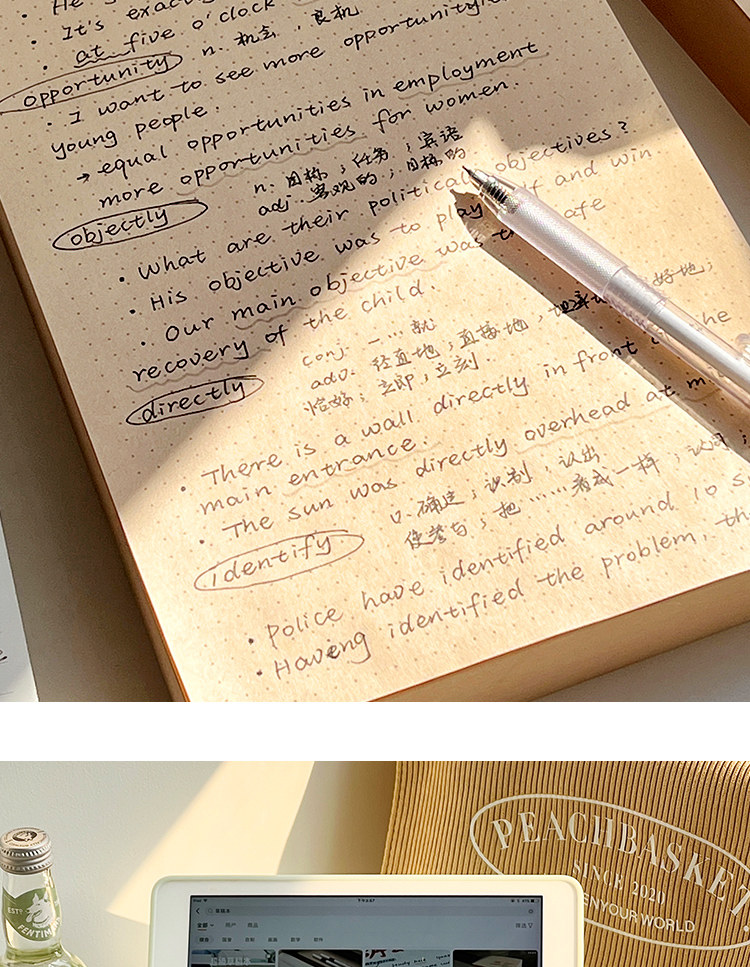 He
It's exac
at five o'clock
opportunity n. 机会, 良机
· I want to see more opportunity
young people.
→ equal opportunities in employment
more opportunities for women.
objectly n. 目标; 任务; 宾语
adj. 客观的; 目标的
· What are their political objectives?
· His objective was to play and win
· Our main objective was the safe
recovery of the child.
directly conj. 一…就
adv. 径直地; 直接地; 好地;
恰好; 立即, 立刻
· There is a wall directly in front the
main entrance.
· The sun was directly overhead at mi
identify v. 确定; 识别, 认出
把……看成一样,
· police have identified around 10
· Haveng identified the problem, th
PEACHBASKET
SINCE 2020
ENYOUR WORLD
ESTD
FENTIM
全部 用户 商品
筛选